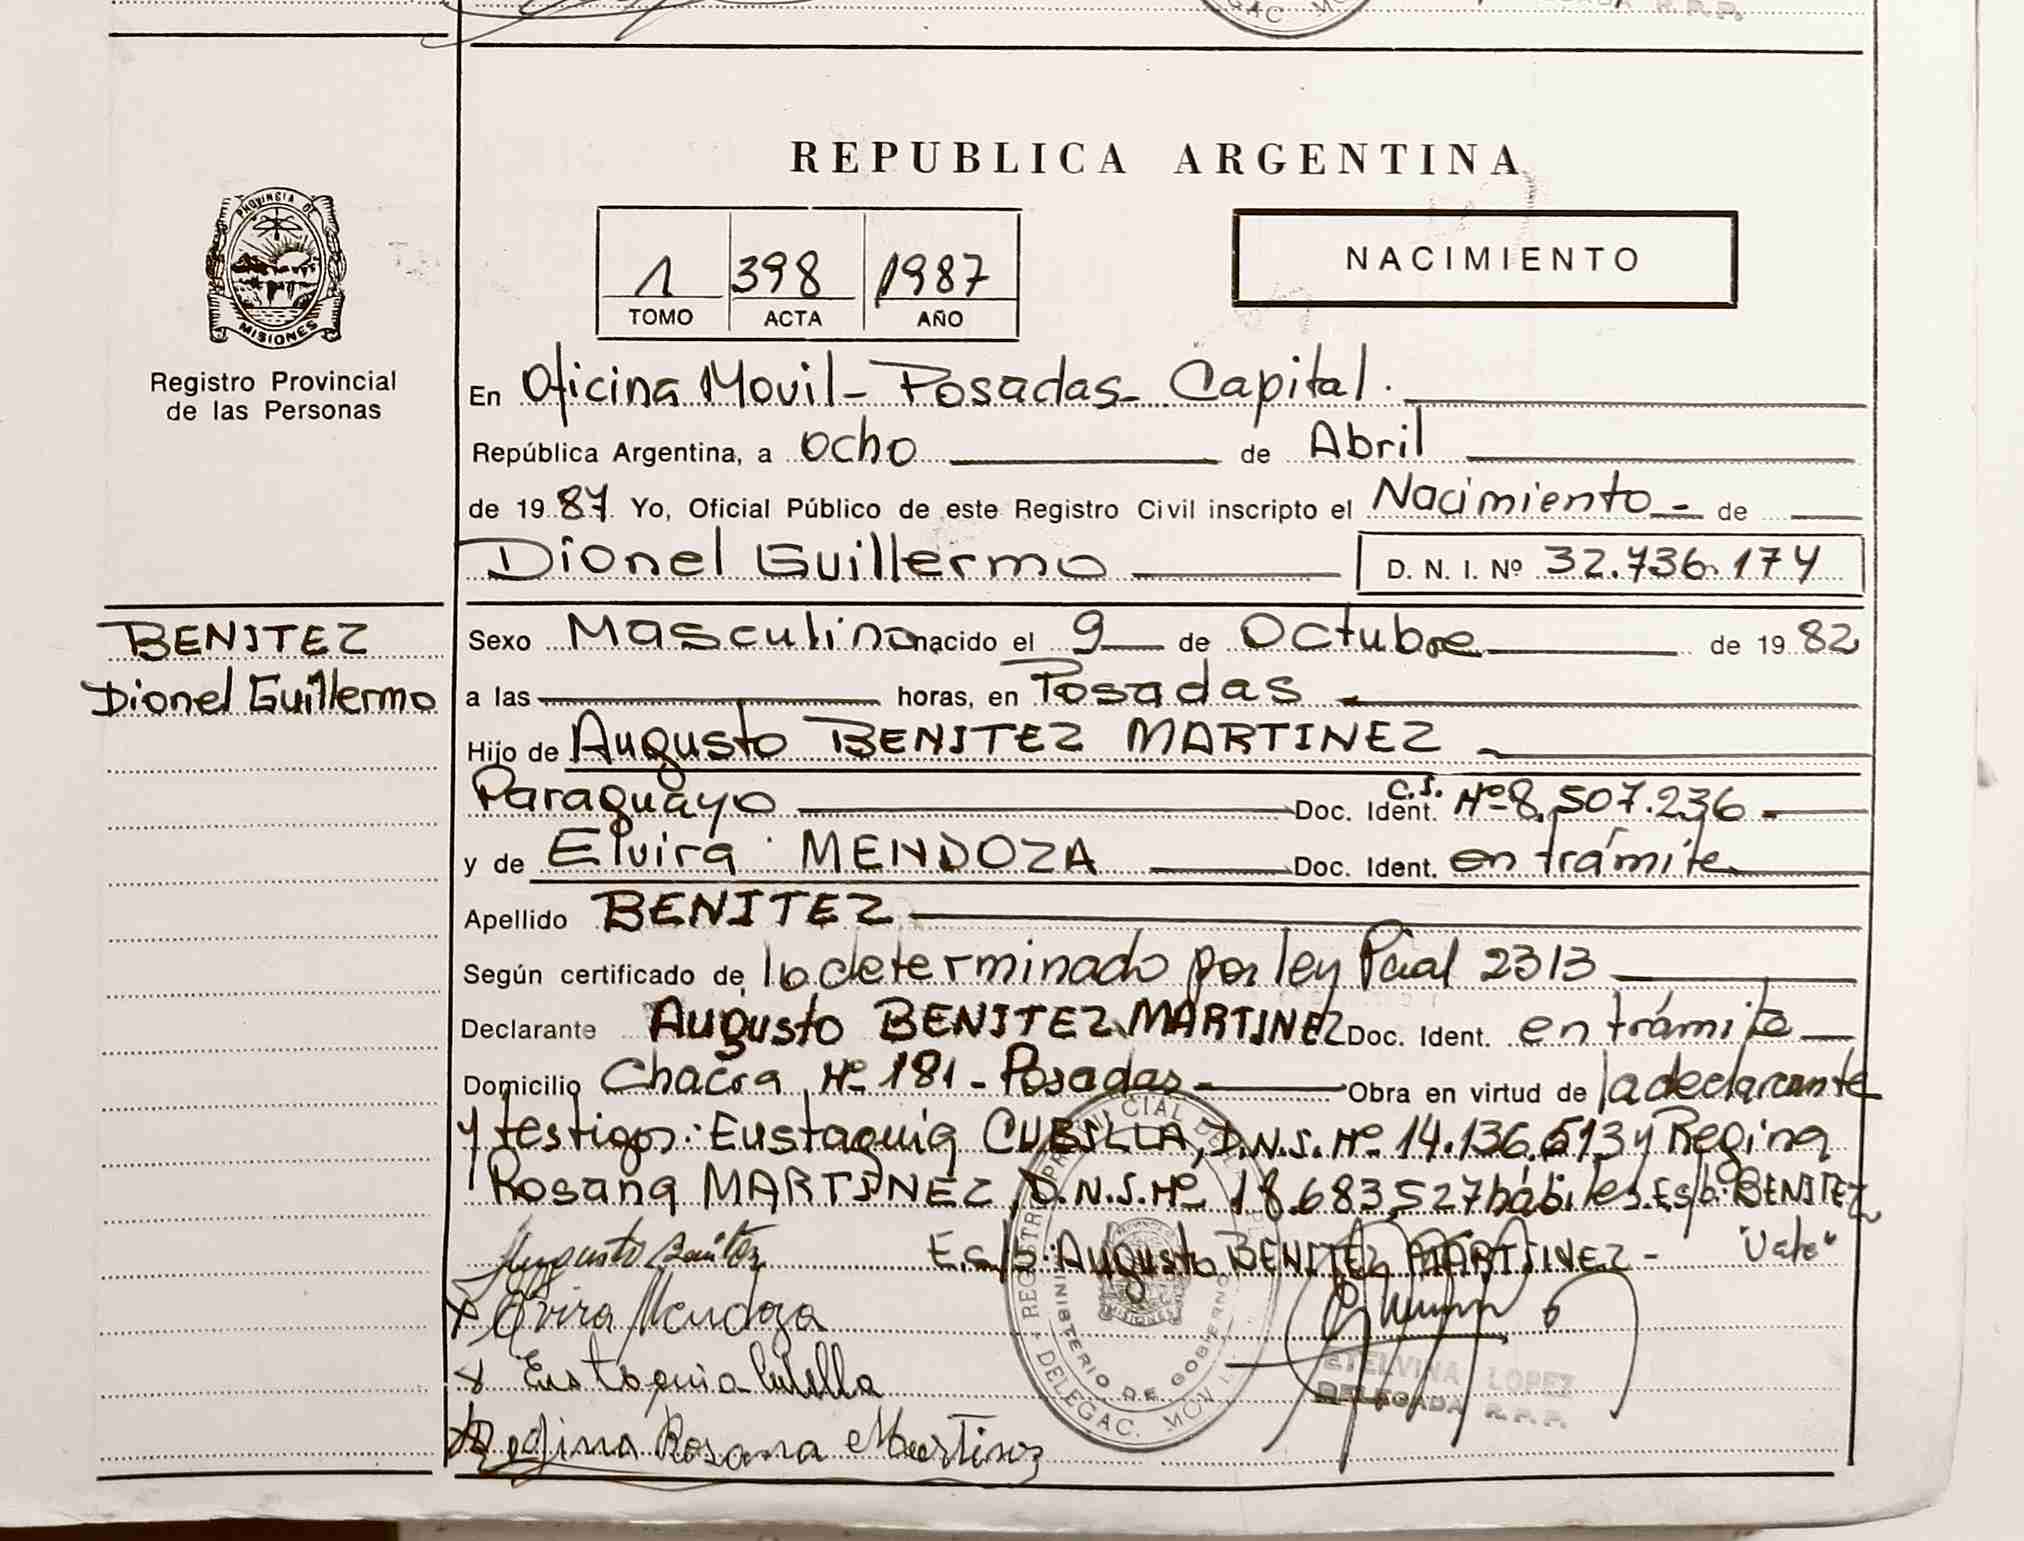 R.P.P.
REPUBLICA ARGENTINA
PROVINCIA DE
MISIONES
Registro Provincial
de las Personas
1 398 1987
TOMO ACTA AÑO
NACIMIENTO
En Oficina Movil - Posadas - Capital.
República Argentina, a ocho de Abril
de 1987. Yo, Oficial Público de este Registro Civil inscripto el Nacimiento - de
Dionel Guillermo D. N. I. Nº 32.736.174
BENITEZ
Dionel Guillermo
Sexo Masculino nacido el 9 de Octubre de 1982
a las horas, en Posadas
Hijo de Augusto BENITEZ MARTINEZ
Paraguayo Doc. Ident. C.I. Nº 8.507.236
y de Elvira MENDOZA Doc. Ident. en trámite
Apellido BENITEZ
Según certificado de lo determinado por ley Pcial 2313
Declarante Augusto BENITEZ MARTINEZ Doc. Ident. en trámite
Domicilio Chacra Nº 181 - Posadas - Obra en virtud de la declarante
y testigos: Eustaquia CUBILLA, D.N.I. Nº 14.136.513 y Regina
Rosana MARTINEZ, D.N.I. Nº 18.683.527 hábiles. Es/b: BENITEZ
E.s/b: Augusto BENITEZ MARTINEZ - "Vale"
Augusto Benitez
Elvira Mendoza
Eustaquia Cubilla
Regina Rosana Martinez
REGISTRO PROVINCIAL DE L
MINISTERIO DE GOBIERNO
DELEGAC. MOVIL
ETELVINA LOPEZ
DELEGADA R.P.P.